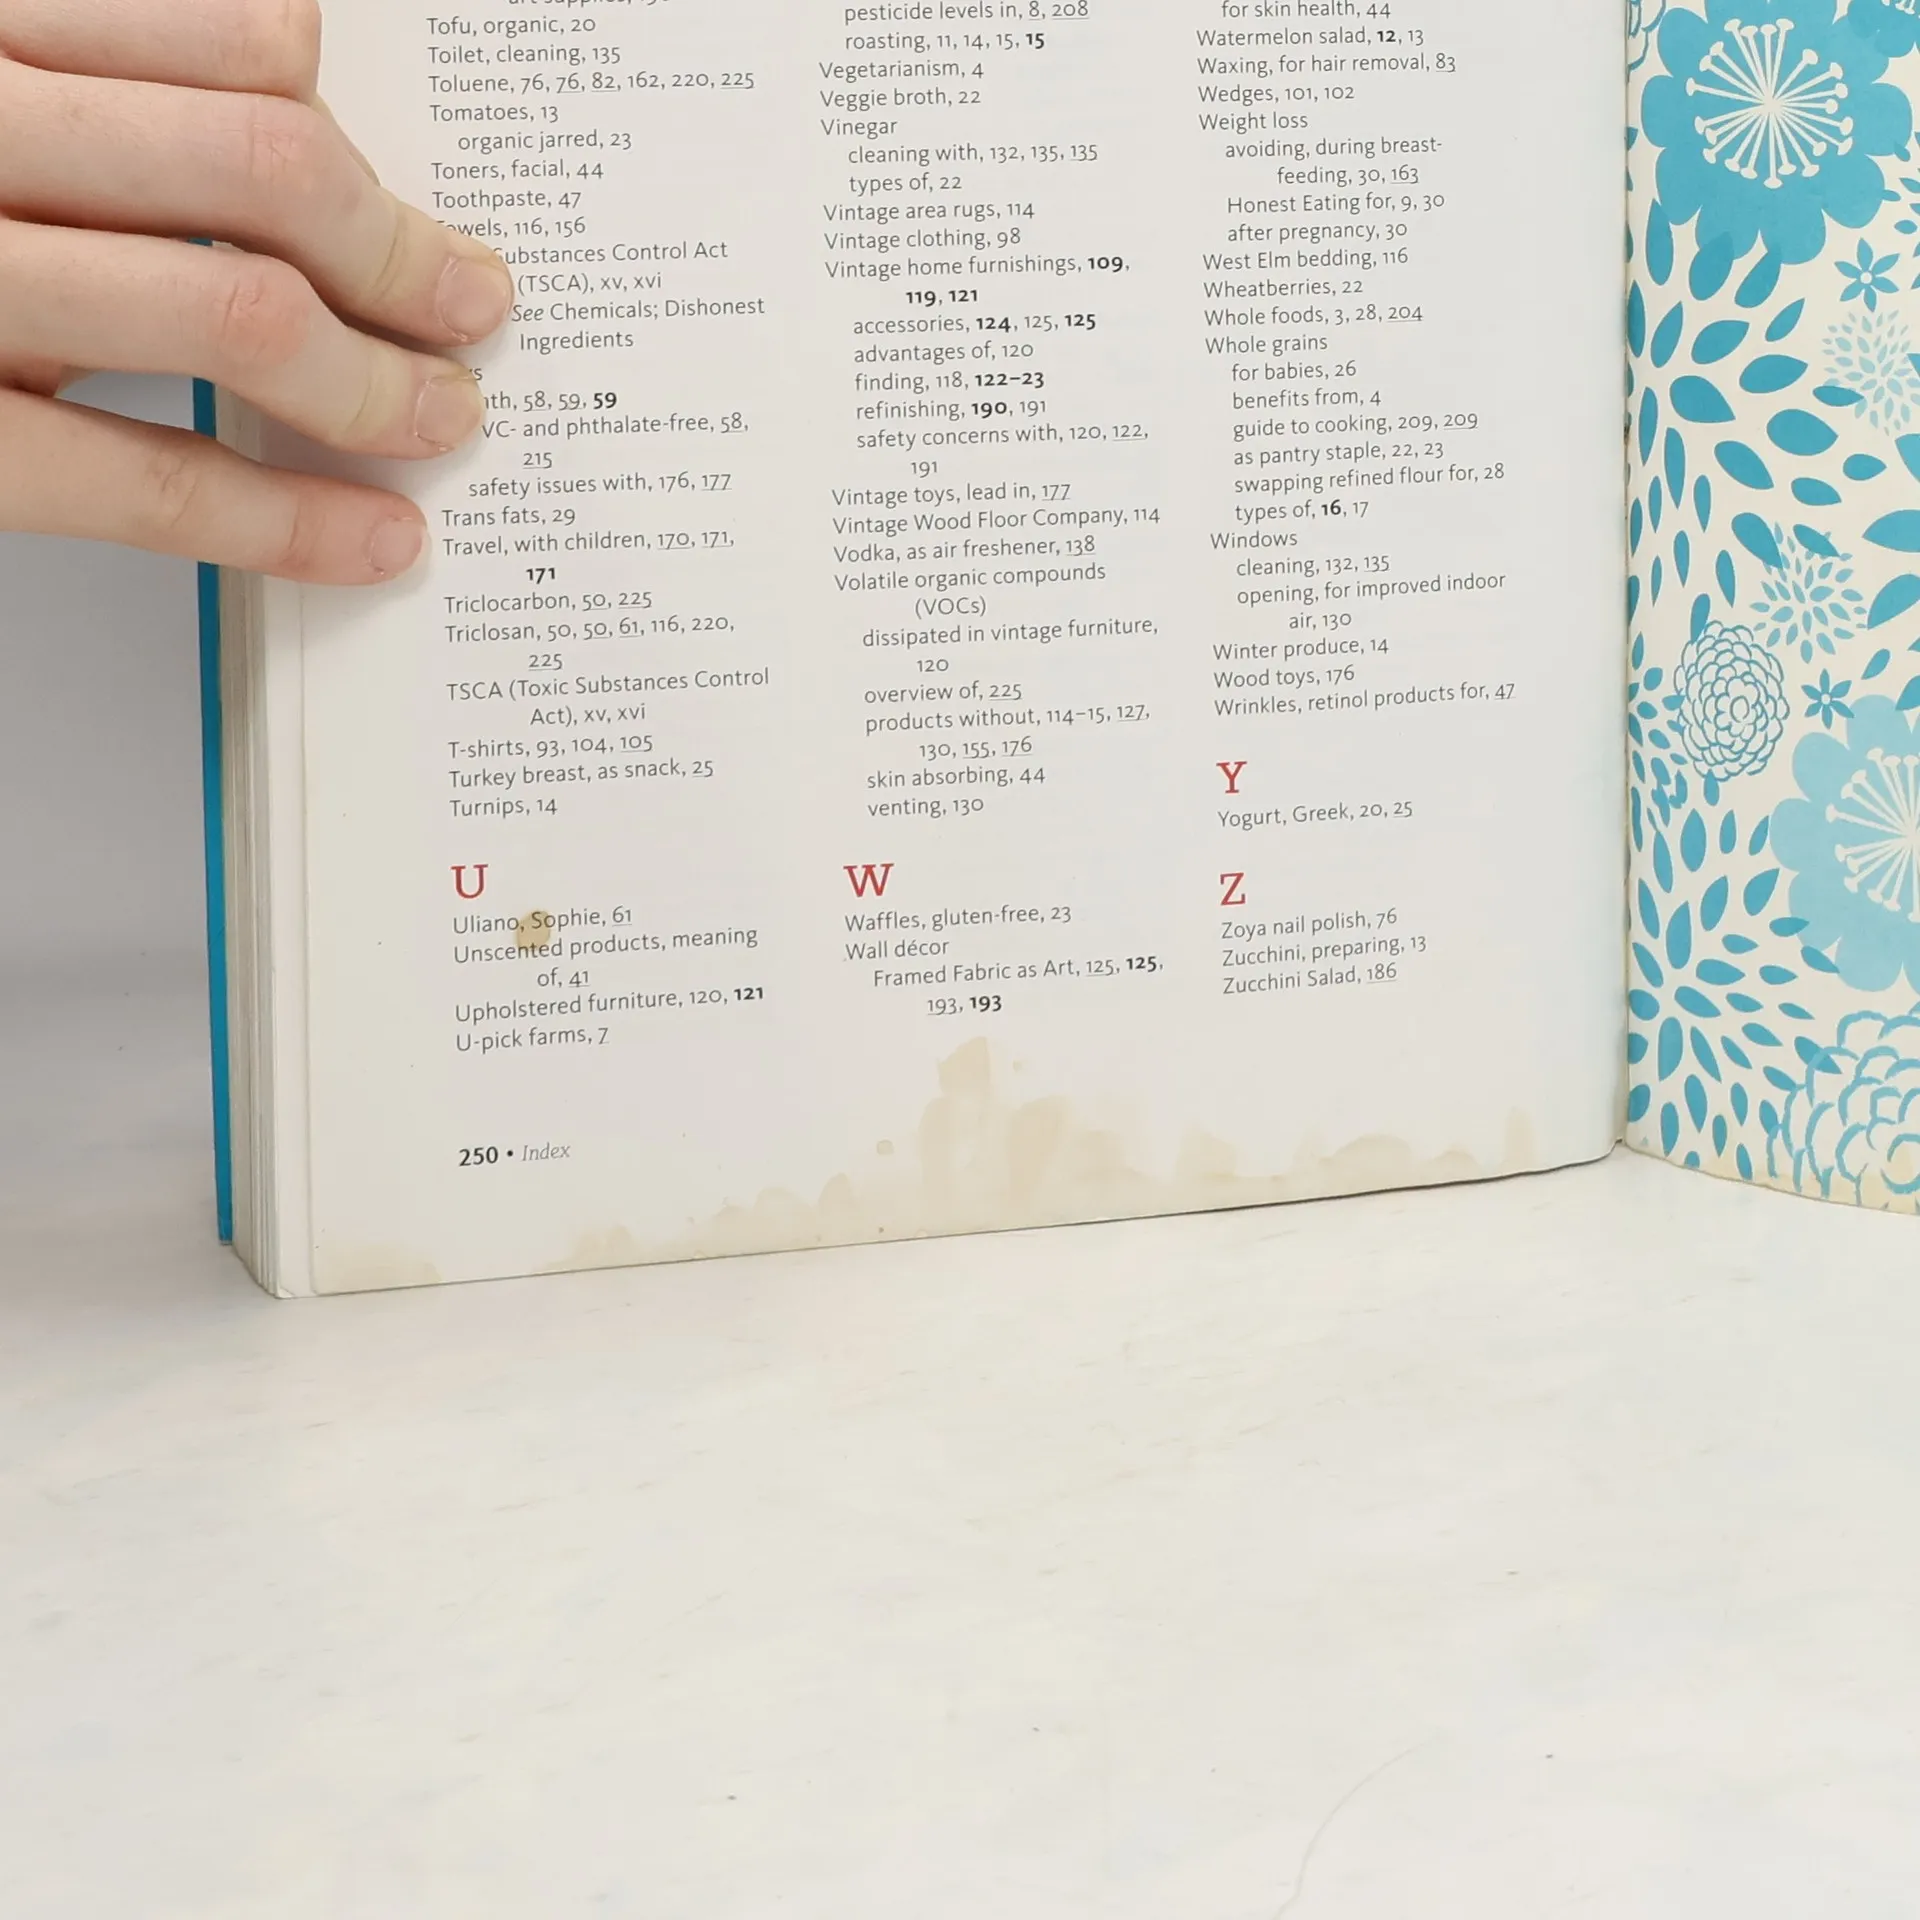 Tofu, organic, 20
Toilet, cleaning, 135
Toluene, 76, 76, 82, 162, 220, 225
Tomatoes, 13
organic jarred, 23
Toners, facial, 44
Toothpaste, 47
116, 156
Substances Control Act
(TSCA), xv, xvi
See Chemicals; Dishonest
Ingredients
58, 59, 59
and phthalate-free, 58,
215
safety issues with, 176, 177
Trans fats, 29
Travel, with children, 170, 171,
171
Triclocarbon, 50, 225
Triclosan, 50, 50, 61, 116, 220,
225
TSCA (Toxic Substances Control
Act), xv, xvi
T-shirts, 93, 104, 105
Turkey breast, as snack, 25
Turnips, 14
U
Uliano, Sophie, 61
Unscented products, meaning
of, 41
Upholstered furniture, 120, 121
U-pick farms, 7
pesticide levels in, 8, 208
roasting, 11, 14, 15, 15
Vegetarianism, 4
Veggie broth, 22
Vinegar
cleaning with, 132, 135, 135
types of, 22
Vintage area rugs, 114
Vintage clothing, 98
Vintage home furnishings, 109,
119, 121
accessories, 124, 125, 125
advantages of, 120
finding, 118, 122–23
refinishing, 190, 191
safety concerns with, 120, 122,
191
Vintage toys, lead in, 177
Vintage Wood Floor Company, 114
Vodka, as air freshener, 138
Volatile organic compounds
(VOCs)
dissipated in vintage furniture,
120
overview of, 225
products without, 114–15, 127,
130, 155, 176
skin absorbing, 44
venting, 130
W
Waffles, gluten-free, 23
Wall décor
Framed Fabric as Art, 125, 125,
193, 193
for skin health, 44
Watermelon salad, 12, 13
Waxing, for hair removal, 83
Wedges, 101, 102
Weight loss
avoiding, during breast-
feeding, 30, 163
Honest Eating for, 9, 30
after pregnancy, 30
West Elm bedding, 116
Wheatberries, 22
Whole foods, 3, 28, 204
Whole grains
for babies, 26
benefits from, 4
guide to cooking, 209, 209
as pantry staple, 22, 23
swapping refined flour for, 28
types of, 16, 17
Windows
cleaning, 132, 135
opening, for improved indoor
air, 130
Winter produce, 14
Wood toys, 176
Wrinkles, retinol products for, 47
Y
Yogurt, Greek, 20, 25
Z
Zoya nail polish, 76
Zucchini, preparing, 13
Zucchini Salad, 186
250 • Index